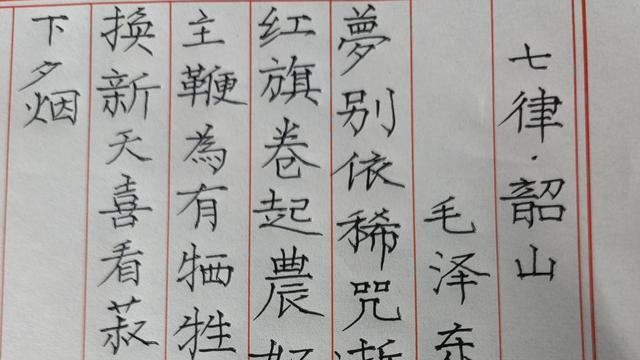 七律·韶山
毛泽东
夢别依稀咒
红旗卷起農
主鞭為有牺牲
换新天喜看菽
下夕烟